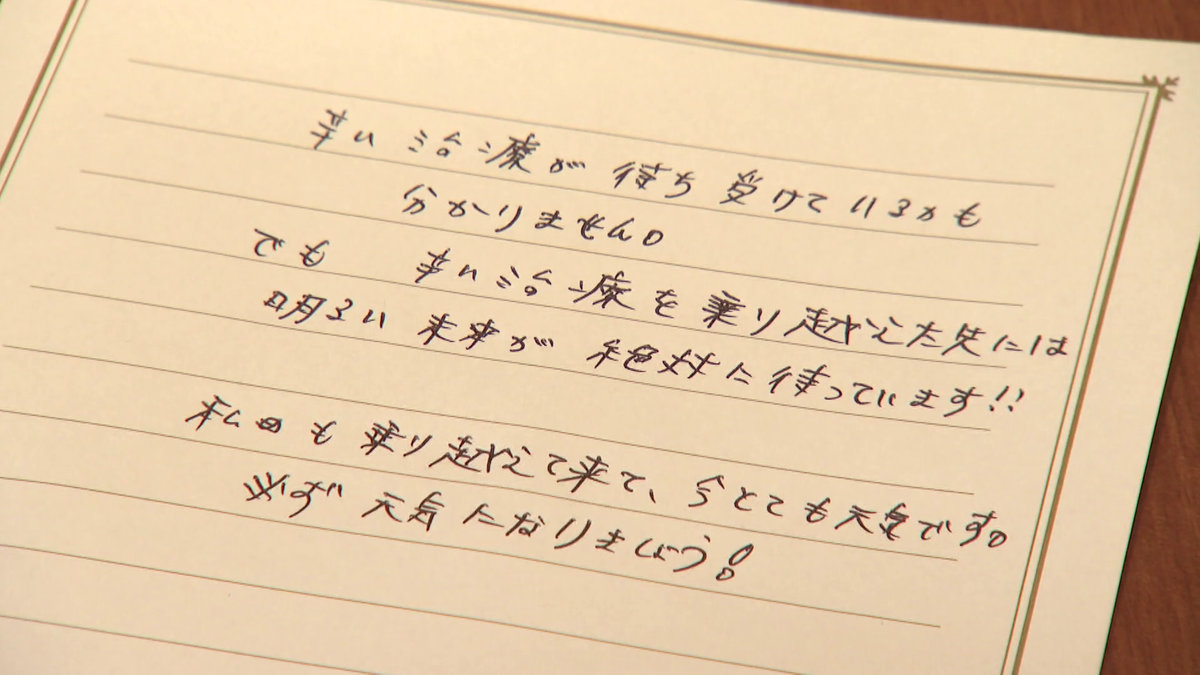 辛い治療が待ち受けているかも
分かりません。
でも 辛い治療を乗り越えた先には
明るい未来が絶対に待っています!!
私も乗り越えて来て、今とても元気です。
必ず元気になりましょう!